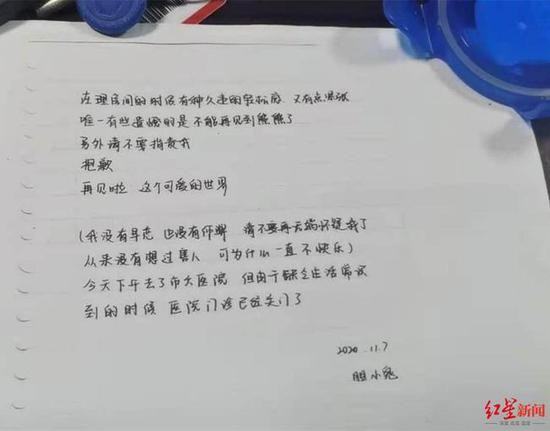 在理房间的时候有种久违的轻松感 又有点紧张
唯一有些遗憾的是不能再见到熊熊了
另外请不要指责我
抱歉
再见啦 这个可爱的世界
(我没有早恋 也没有作弊 请不要再无端怀疑我了
从来没有想过害人 可为什么一直不快乐)
今天下午去了市大医院 但由于缺乏生活常识
到的时候 医院门诊已经关门了
2020.11.7
胆小鬼
红星新闻